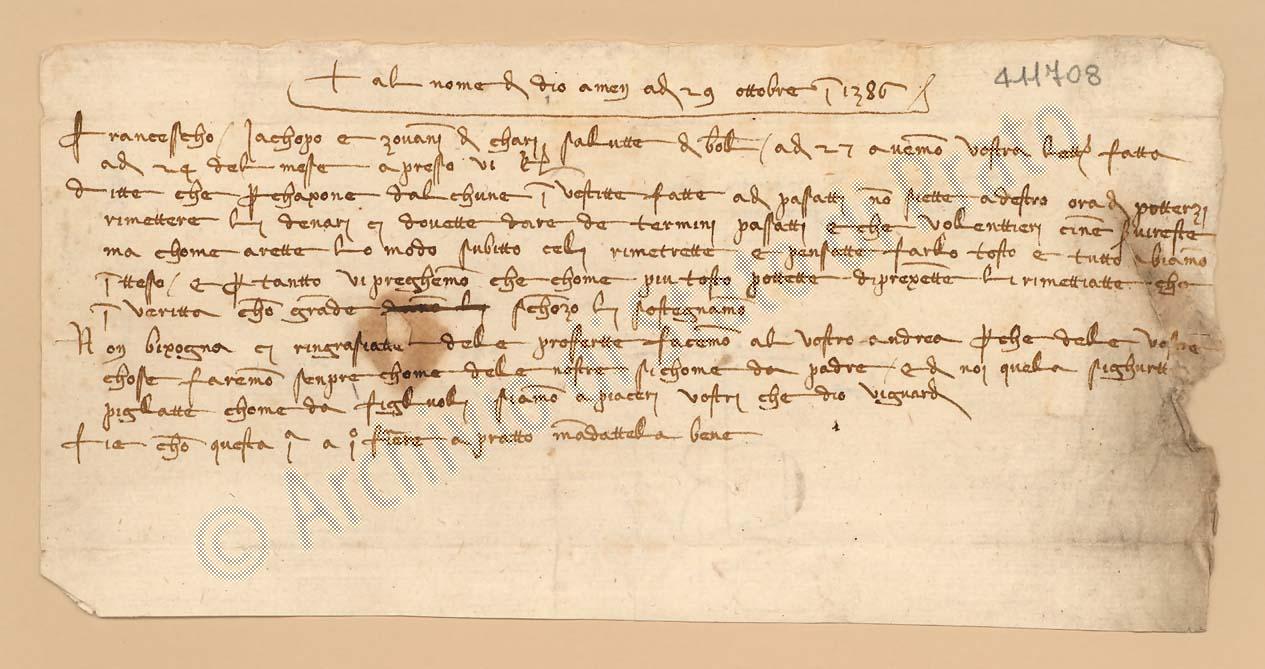 + al nome d dio amen ad 29 ottobre ī 1386
411708
Franceschо Jachopo e zovāni d chari salutte d bol / ad 27 avemo vostra lettȧ fatta
ad 24 del mese apresso vi
ditte che p chaxone dalchune ī vestitte fatte ad passatti nō siette adestro ora d potterzi
rimettere li denari ci dovette dare de termini passatti e che volenttieri cine svireste
ma chome arette lo modo subitto celi rimetrette e pensatte farlo tosto e tutto abiāmo
ī tteso / e p tantto vi preghēmo che chome piu tosto pottette diprexētte li rimettiatte che
ī veritta chō grāde schōzo li sostegnāmo
Non bixogna ci ringrasiatte delle proffertte facēmo al vostro andrea p che delle vostre
chosse farēmo senpre chome dele nostre sichome da padre e d noi quela sighurtt
pigliatte chome da figluoli siāmo a piaceri vostri che dio vi guard
Fie chō questa jª a jº Fiēre a pratto mādattella bene
© Archivio di Stato di Prato